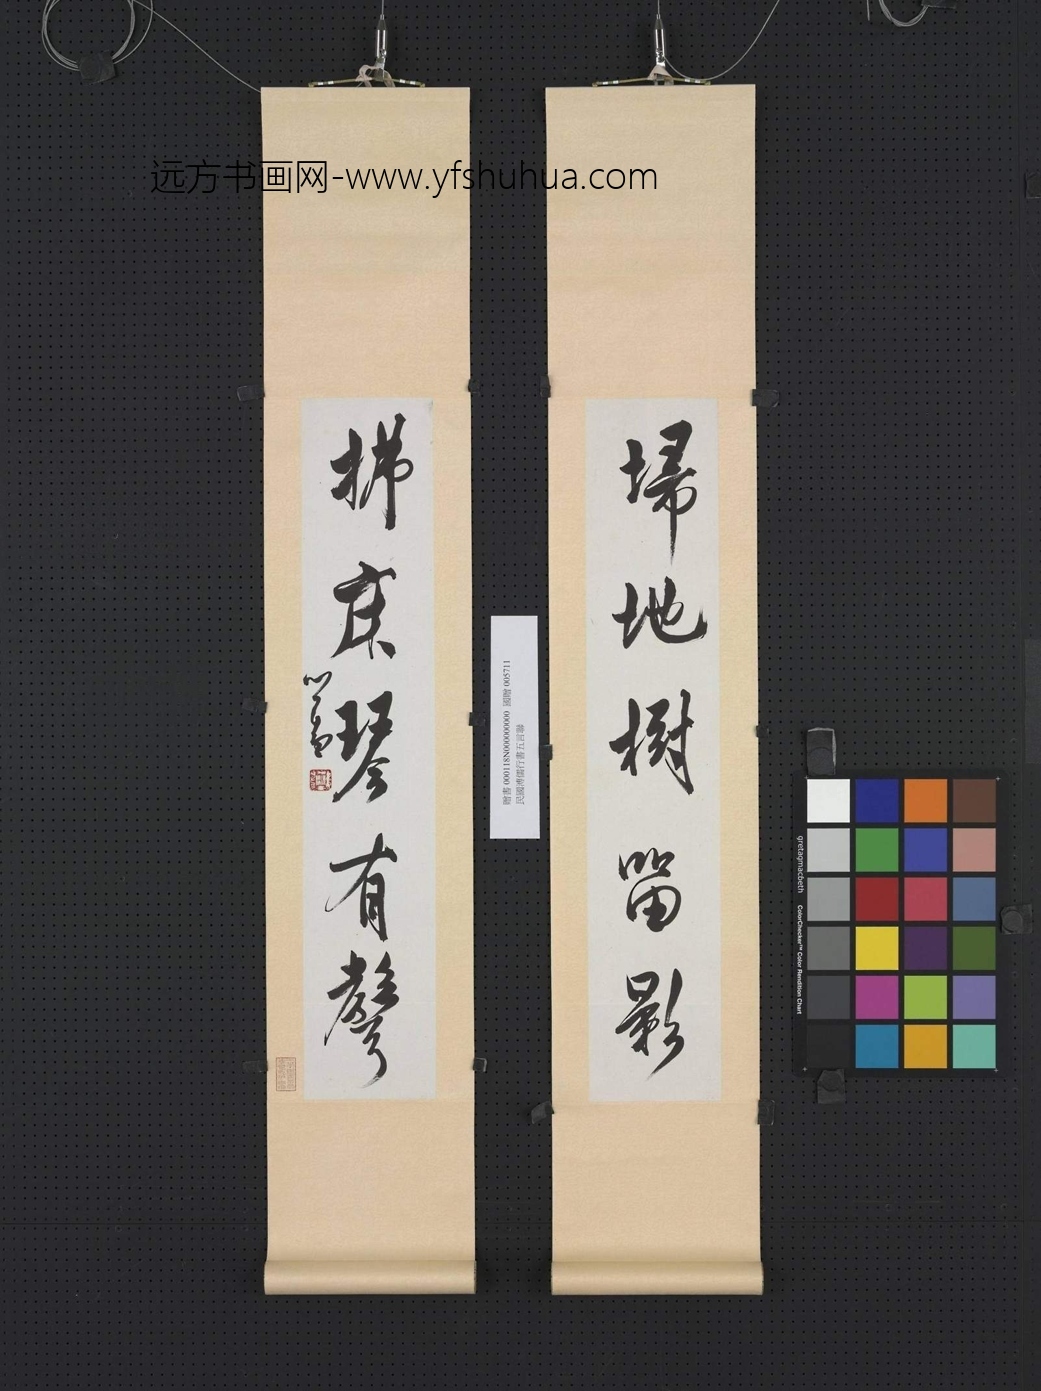 远方书画网-www.yfshuhua.com
埽地樹留影
拂床琴有聲
心畬
贈書 000118N000000000 國贈 005711
民國溥儒行書五言聯
gretagmacbeth
ColorChecker™ Color Rendition Chart